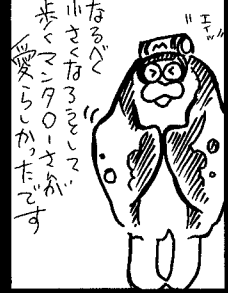 なるべく
小さくなろうとして
歩くマンタローさんが
愛らしかったです
エイッ
M